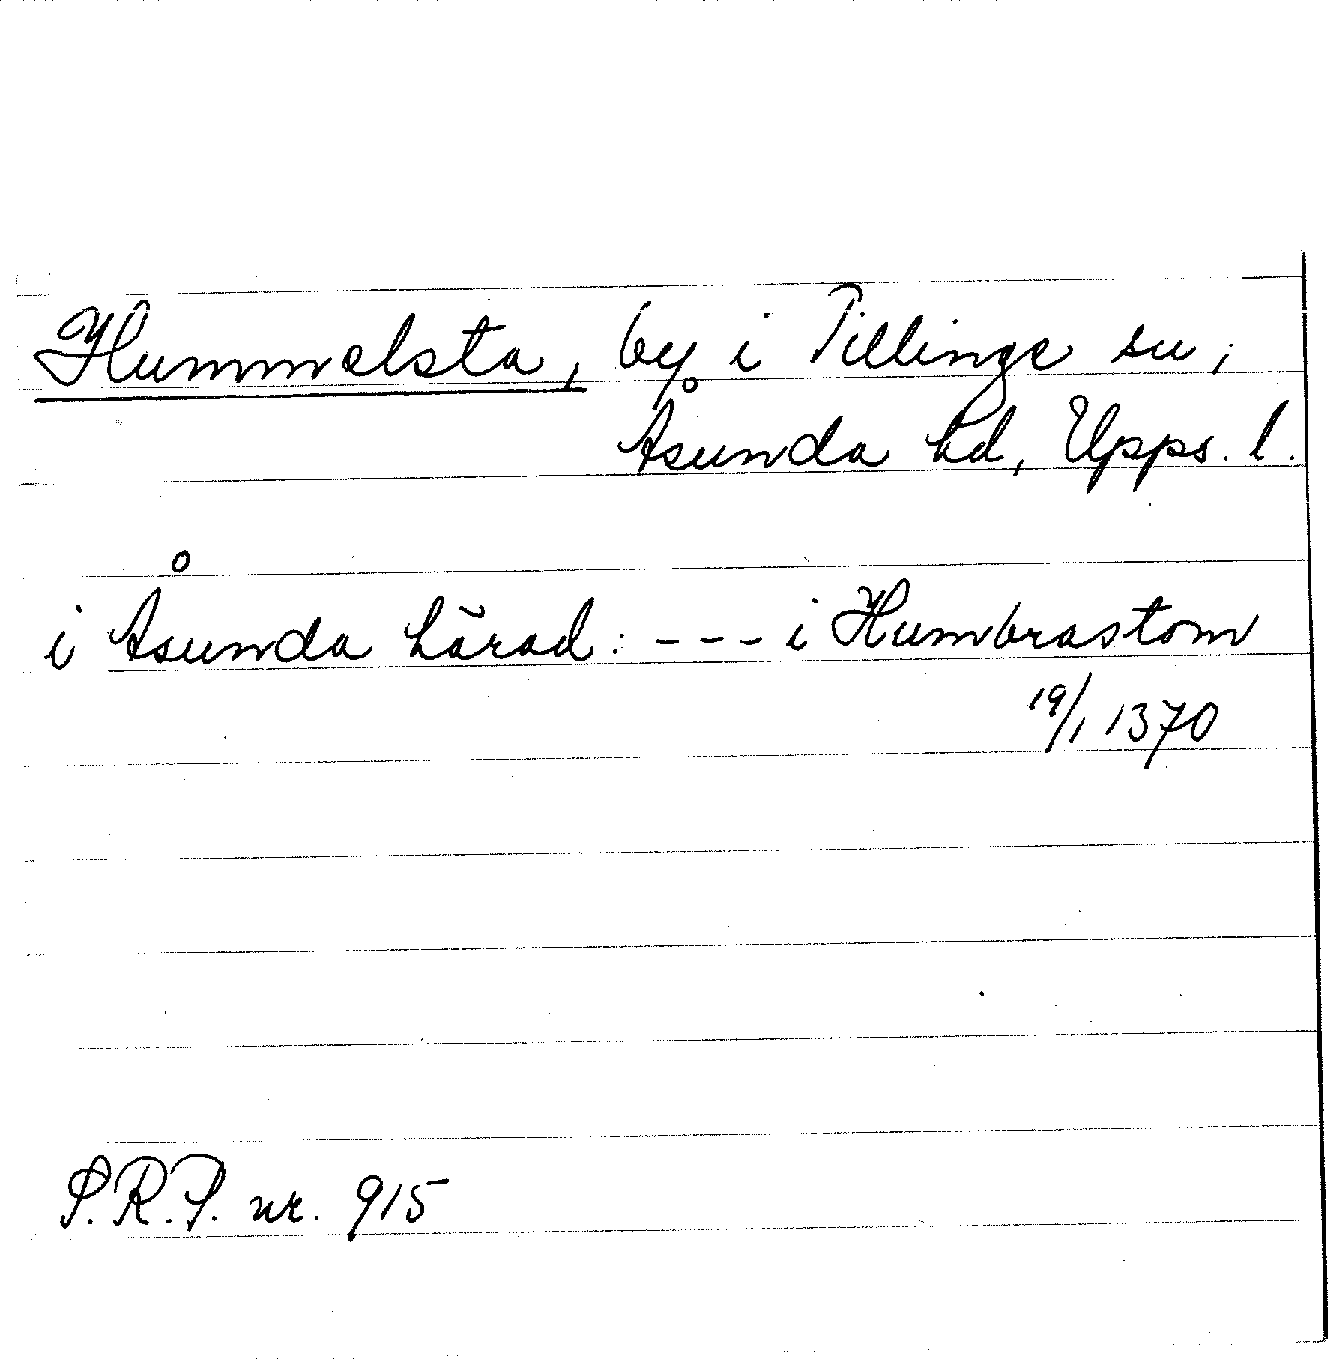 Hummelsta, by i Tillinge sn;
Åsunda hd, Upps. l.
i Åsunda härad: --- i Humbrastom
19/1 1370
S.R.P. nr. 915